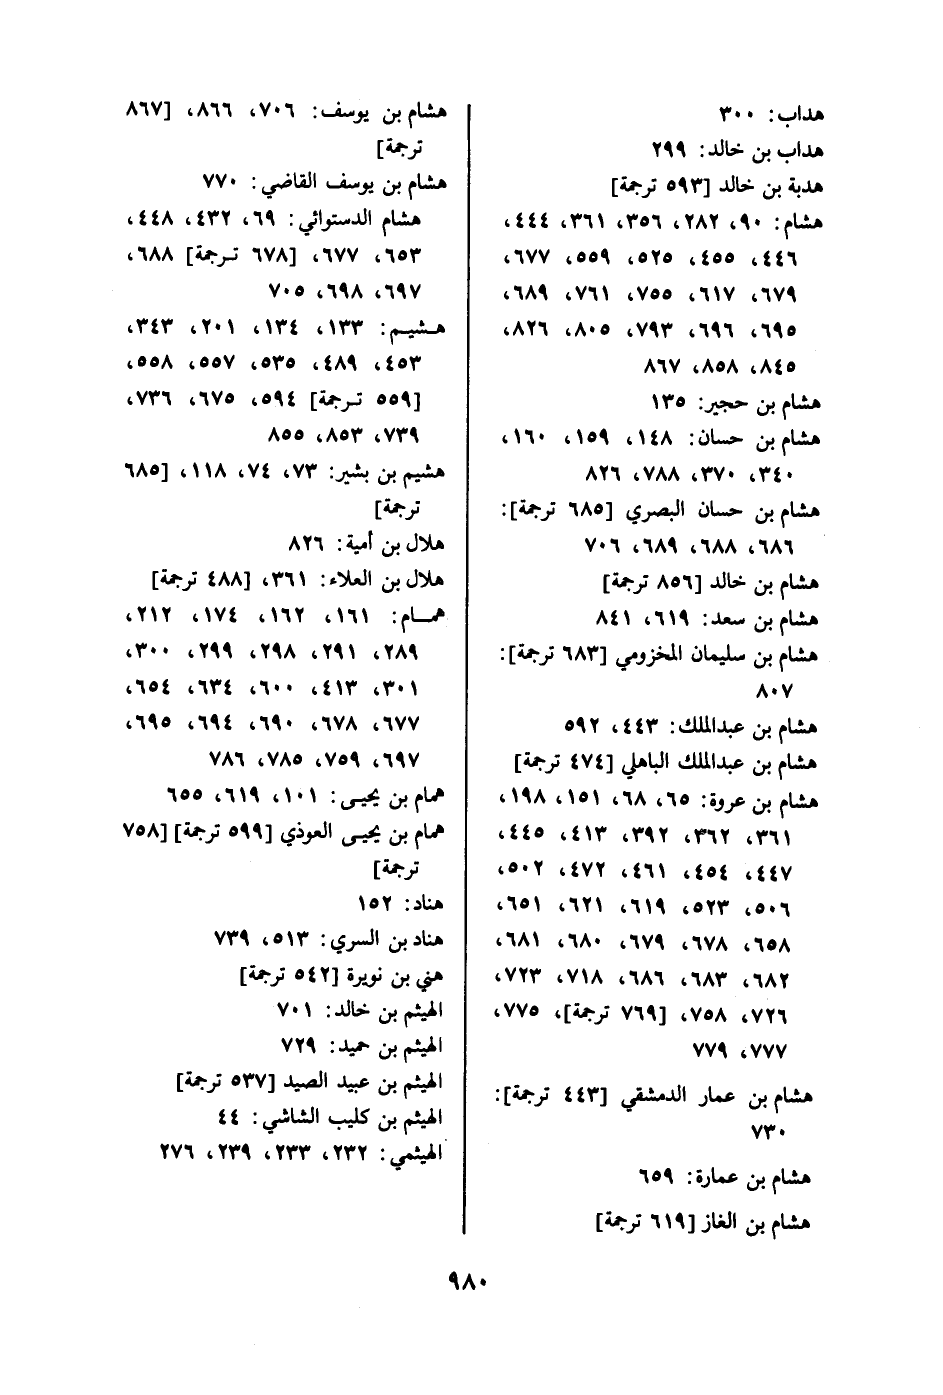 هداب: ٣٠٠
هداب بن خالد: ٢٩٩
هدبة بن خالد [٥٩٣ ترجمة]
هشام: ٩٠، ٢٨٢، ٣٥٦، ٣٦١، ٤٤٤،
٤٤٦، ٤٥٥، ٥٢٥، ٥٥٩، ٦٧٧،
٦٧٩، ٦١٧، ٧٥٥، ٧٦١، ٦٨٩،
٦٩٥، ٦٩٦، ٧٩٣، ٨٠٥، ٨٢٦،
٨٤٥، ٨٥٨، ٨٦٧
هشام بن حجير: ١٣٥
هشام بن حسان: ١٤٨، ١٥٩، ١٦٠،
٣٤٠، ٣٧٠، ٧٨٨، ٨٢٦
هشام بن حسان البصري [٦٨٥ ترجمة]:
٦٨٦، ٦٨٨، ٦٨٩، ٧٠٦
هشام بن خالد [٨٥٦ ترجمة]
هشام بن سعد: ٦١٩، ٨٤١
هشام بن سليمان المخزومي [٦٨٣ ترجمة]:
٨٠٧
هشام بن عبدالملك: ٤٤٣، ٥٩٢
هشام بن عبدالملك الباهلي [٤٧٤ ترجمة]
هشام بن عروة: ٦٥، ٦٨، ١٥١، ١٩٨،
٣٦١، ٣٦٢، ٣٩٢، ٤١٣، ٤٤٥،
٤٤٧، ٤٥٤، ٤٦١، ٤٧٢، ٥٠٢،
٥٠٦، ٥٢٣، ٦١٩، ٦٢١، ٦٥١،
٦٥٨، ٦٧٨، ٦٧٩، ٦٨٠، ٦٨١،
٦٨٢، ٦٨٣، ٦٨٦، ٧١٨، ٧٢٣،
٧٢٦، ٧٥٨، [٧٦٩ ترجمة]، ٧٧٥،
٧٧٧، ٧٧٩
هشام بن عمار الدمشقي [٤٤٣ ترجمة]:
٧٣٠
هشام بن عمارة: ٦٥٩
هشام بن الغاز [٦١٩ ترجمة]
هشام بن يوسف: ٧٠٦، ٨٦٦، [٨٦٧
ترجمة]
هشام بن يوسف القاضي: ٧٧٠
هشام الدستوائي: ٦٩، ٤٣٢، ٤٤٨،
٦٥٣، ٦٧٧، [٦٧٨ ترجمة] ٦٨٨،
٦٩٧، ٦٩٨، ٧٠٥
هشيم: ١٣٣، ١٣٤، ٢٠١، ٣٤٣،
٤٥٣، ٤٨٩، ٥٣٥، ٥٥٧، ٥٥٨،
[٥٥٩ ترجمة] ٥٩٤، ٦٧٥، ٧٣٦،
٧٣٩، ٨٥٣، ٨٥٥
هشيم بن بشير: ٧٣، ٧٤، ١١٨، [٦٨٥
ترجمة]
هلال بن أمية: ٨٢٦
هلال بن العلاء: ٣٦١، [٤٨٨ ترجمة]
همام: ١٦١، ١٦٢، ١٧٤، ٢١٢،
٢٨٩، ٢٩١، ٢٩٨، ٢٩٩، ٣٠٠،
٣٠١، ٤١٣، ٦٠٠، ٦٣٤، ٦٥٤،
٦٧٧، ٦٧٨، ٦٩٠، ٦٩٤، ٦٩٥،
٦٩٧، ٧٥٩، ٧٨٥، ٧٨٦
همام بن يحيى: ١٠١، ٦١٩، ٦٥٥
همام بن يحيى العوذي [٥٩٩ ترجمة] [٧٥٨
ترجمة]
هناد: ١٥٢
هناد بن السري: ٥١٣، ٧٣٩
هني بن نويرة [٥٤٢ ترجمة]
الهيثم بن خالد: ٧٠١
الهيثم بن حميد: ٧٢٩
الهيثم بن عبيد الصيد [٥٣٧ ترجمة]
الهيثم بن كليب الشاشي: ٤٤
الهيثمي: ٢٣٢، ٢٣٣، ٢٣٩، ٢٧٦
٩٨٠